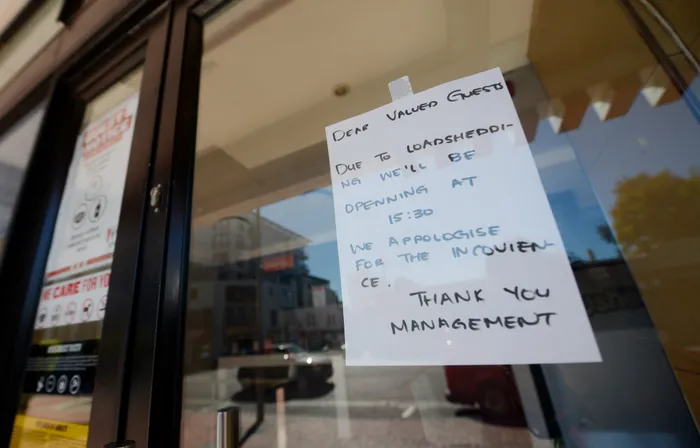 DEAR VALUED GUESTS
DUE TO LOADSHEDDI-
NG WE'LL BE
OPENNING AT
15:30
WE APPOLOGISE
FOR THE INCOVIEN-
CE.
THANK YOU
MANAGEMENT
WE CARE FOR YO